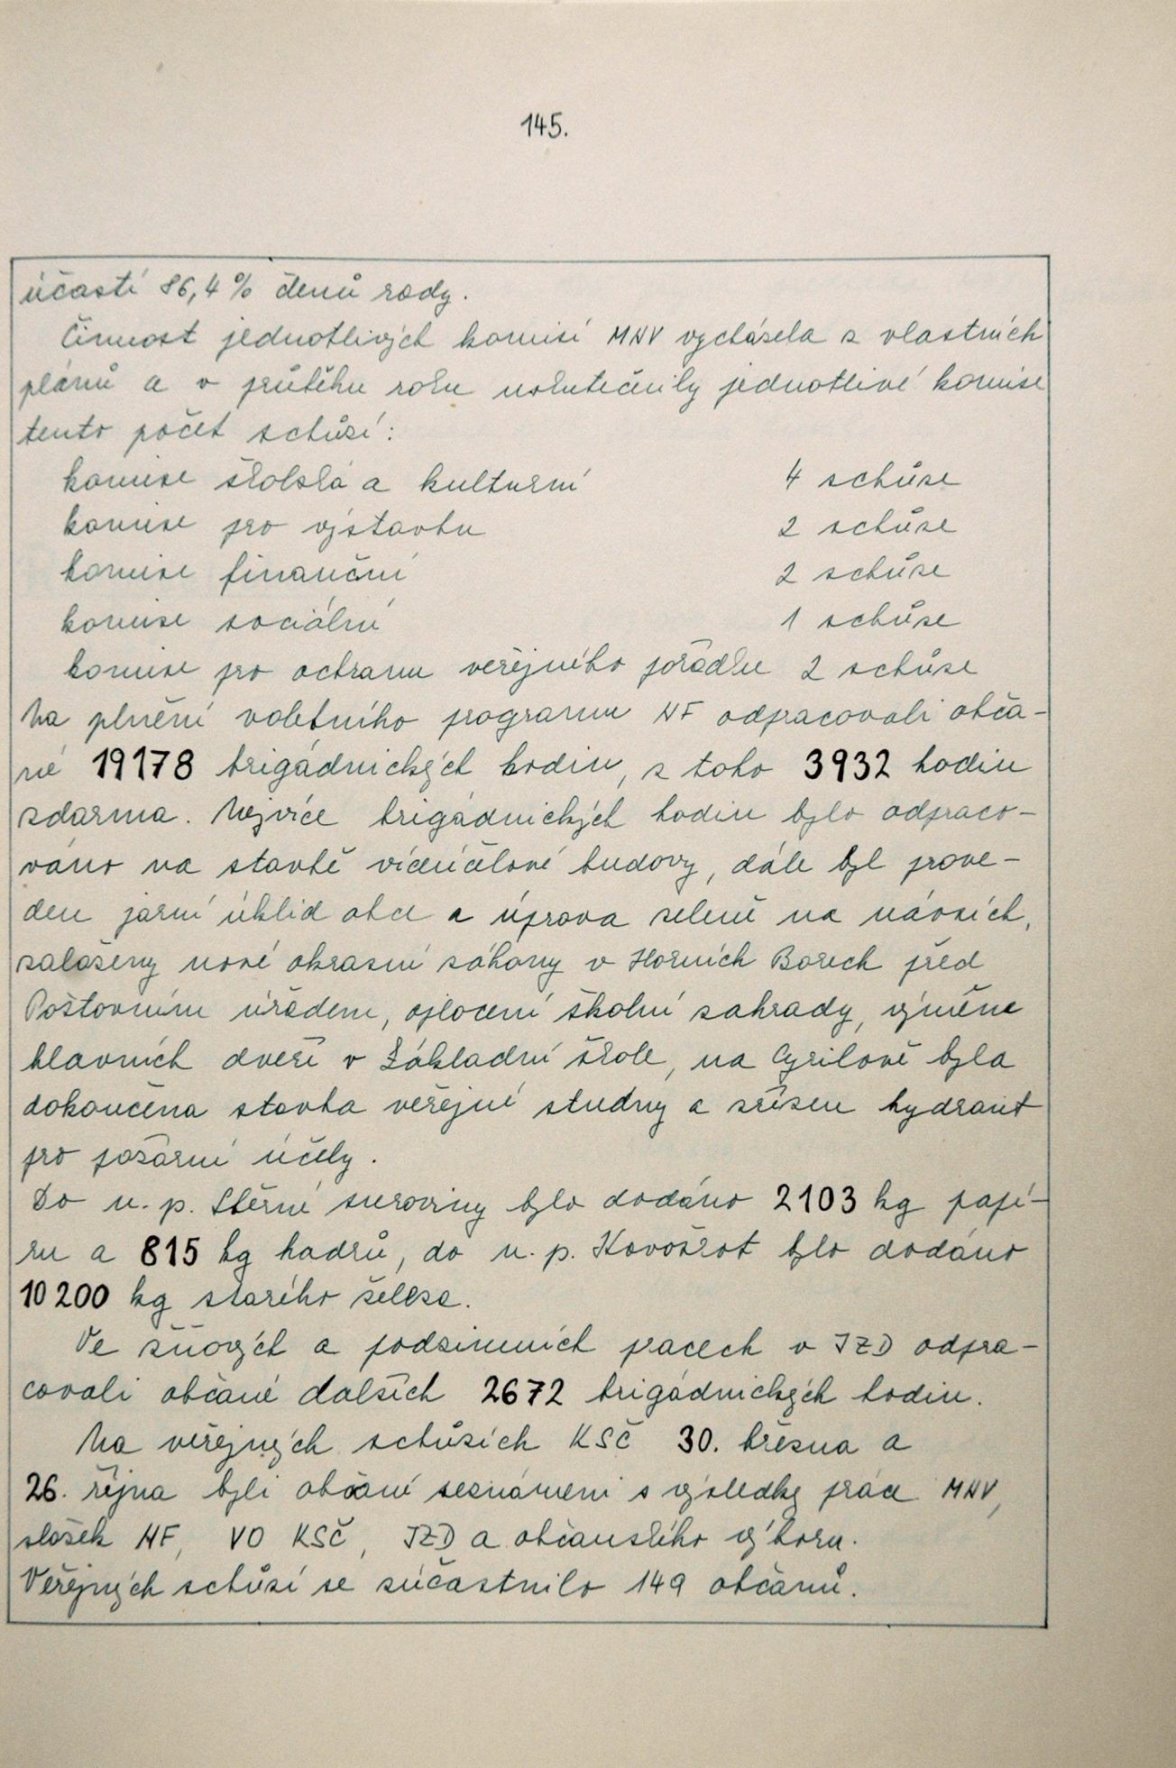 145.
účastí 86,4% členů rady.
Činnost jednotlivých komisí MNV vycházela z vlastních
plánů a v průběhu roku uskutečnily jednotlivé komise
tento počet schůzí:
komise školská a kulturní 4 schůze
komise pro výstavbu 2 schůze
komise finanční 2 schůze
komise sociální 1 schůze
komise pro ochranu veřejného pořádku 2 schůze
Na plnění volebního programu NF odpracovali obča-
né 19178 brigádnických hodin, z toho 3932 hodin
zdarma. Nejvíce brigádnických hodin bylo odpraco-
váno na stavbě víceúčelové budovy, dále byl prove-
den jarní úklid obce a úprava zeleně na návsích,
založeny nové okrasné záhony v Horních Borech před
Poštovním úřadem, oplocení školní zahrady, výměna
hlavních dveří v Základní škole, na Cyrilově byla
dokončena stavba veřejné studny a zřízen hydrant
pro požární účely.
Do n. p. Sběrné suroviny bylo dodáno 2103 kg papí-
ru a 815 kg hadrů, do n. p. Kovošrot bylo dodáno
10200 kg starého železa.
Ve žňových a podzimních pracech v JZD odpra-
covali občané dalších 2672 brigádnických hodin.
Na veřejných schůzích KSČ 30. března a
26. října byli občané seznámeni s výsledky práce MNV,
složek NF, VO KSČ, JZD a občanského výboru.
Veřejných schůzí se zúčastnilo 149 občanů.